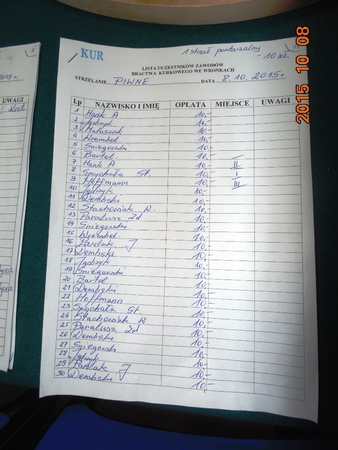 KUR
1 strzał powtarzalny
- 10 zł.
LISTA UCZESTNIKÓW ZAWODÓW
BRACTWA KURKOWEGO WE WRONKACH
STRZELANIE PIWNE DATA 8.10.2015r
Lp NAZWISKO I IMIĘ OPŁATA MIEJSCE UWAGI
1 Haak A 10,-
2 10,-
3 Matuszak 10,-
4 10,-
5 Śniegowski 10,-
6 Bartol 10,- 
7 Haak A 10,- II
8 Spychała St. 10,- I
9 Hoffmann 10,- III
10 10,-
11 Dembski 10,-
12 Stachowiak R 10,-
13 Paralusz Zd 10,-
14 Śniegowski 10,-
15 10,-
16 J 10,-
17 Dembski 10,-
18 10,-
19 Śniegowski 10,-
20 Bartol 10,-
21 Dembski 10,-
22 Hoffmann 10,-
23 Spychała St. 10,-
24 Stachowiak R 10,-
25 Paralusz Zd 10,-
26 Dembski 10,-
27 Śniegowski 10,-
28 10,-
29 J 10,-
30 Dembski 10,-
UWAGI
2015 10 08